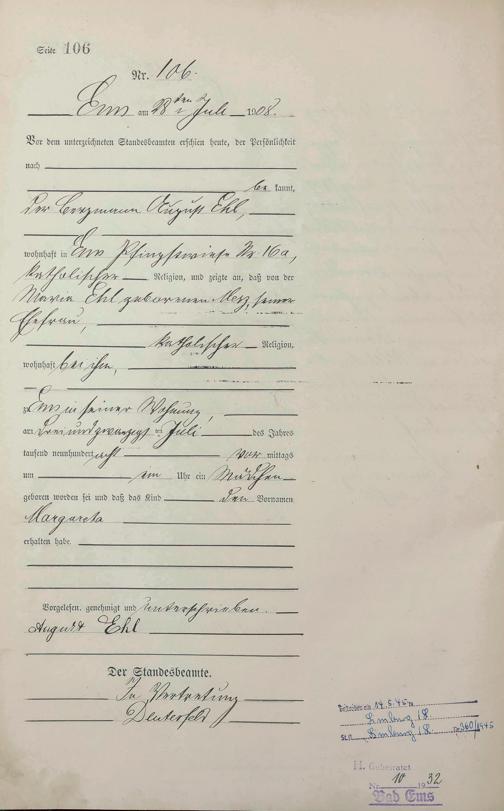 Seite 106
Nr. 106.
Ems am 28ten Juli 1908.
Vor dem unterzeichneten Standesbeamten erschien heute, der Persönlichkeit
nach
be kannt,
der Bergmann August Ehl,
wohnhaft in Ems Pfingstwiese Nr 16a,
katholischer Religion, und zeigte an, daß von der
Maria Ehl geborenen Merz, seiner
Ehefrau,
katholischer Religion,
wohnhaft bei ihm,
zu Ems in seiner Wohnung,
am dreiundzwanzigsten Juli des Jahres
tausend neunhundert acht vor mittags
um ein Uhr ein Mädchen
geboren worden sei und daß das Kind den Vornamen
Margareta
erhalten habe.
Vorgelesen, genehmigt und unterschrieben.
August Ehl
Der Standesbeamte.
In Vertretung
14.5.45
Limburg
Limburg 360/1945
H. Geheiratet
Nr. 10 1932
Bad Ems